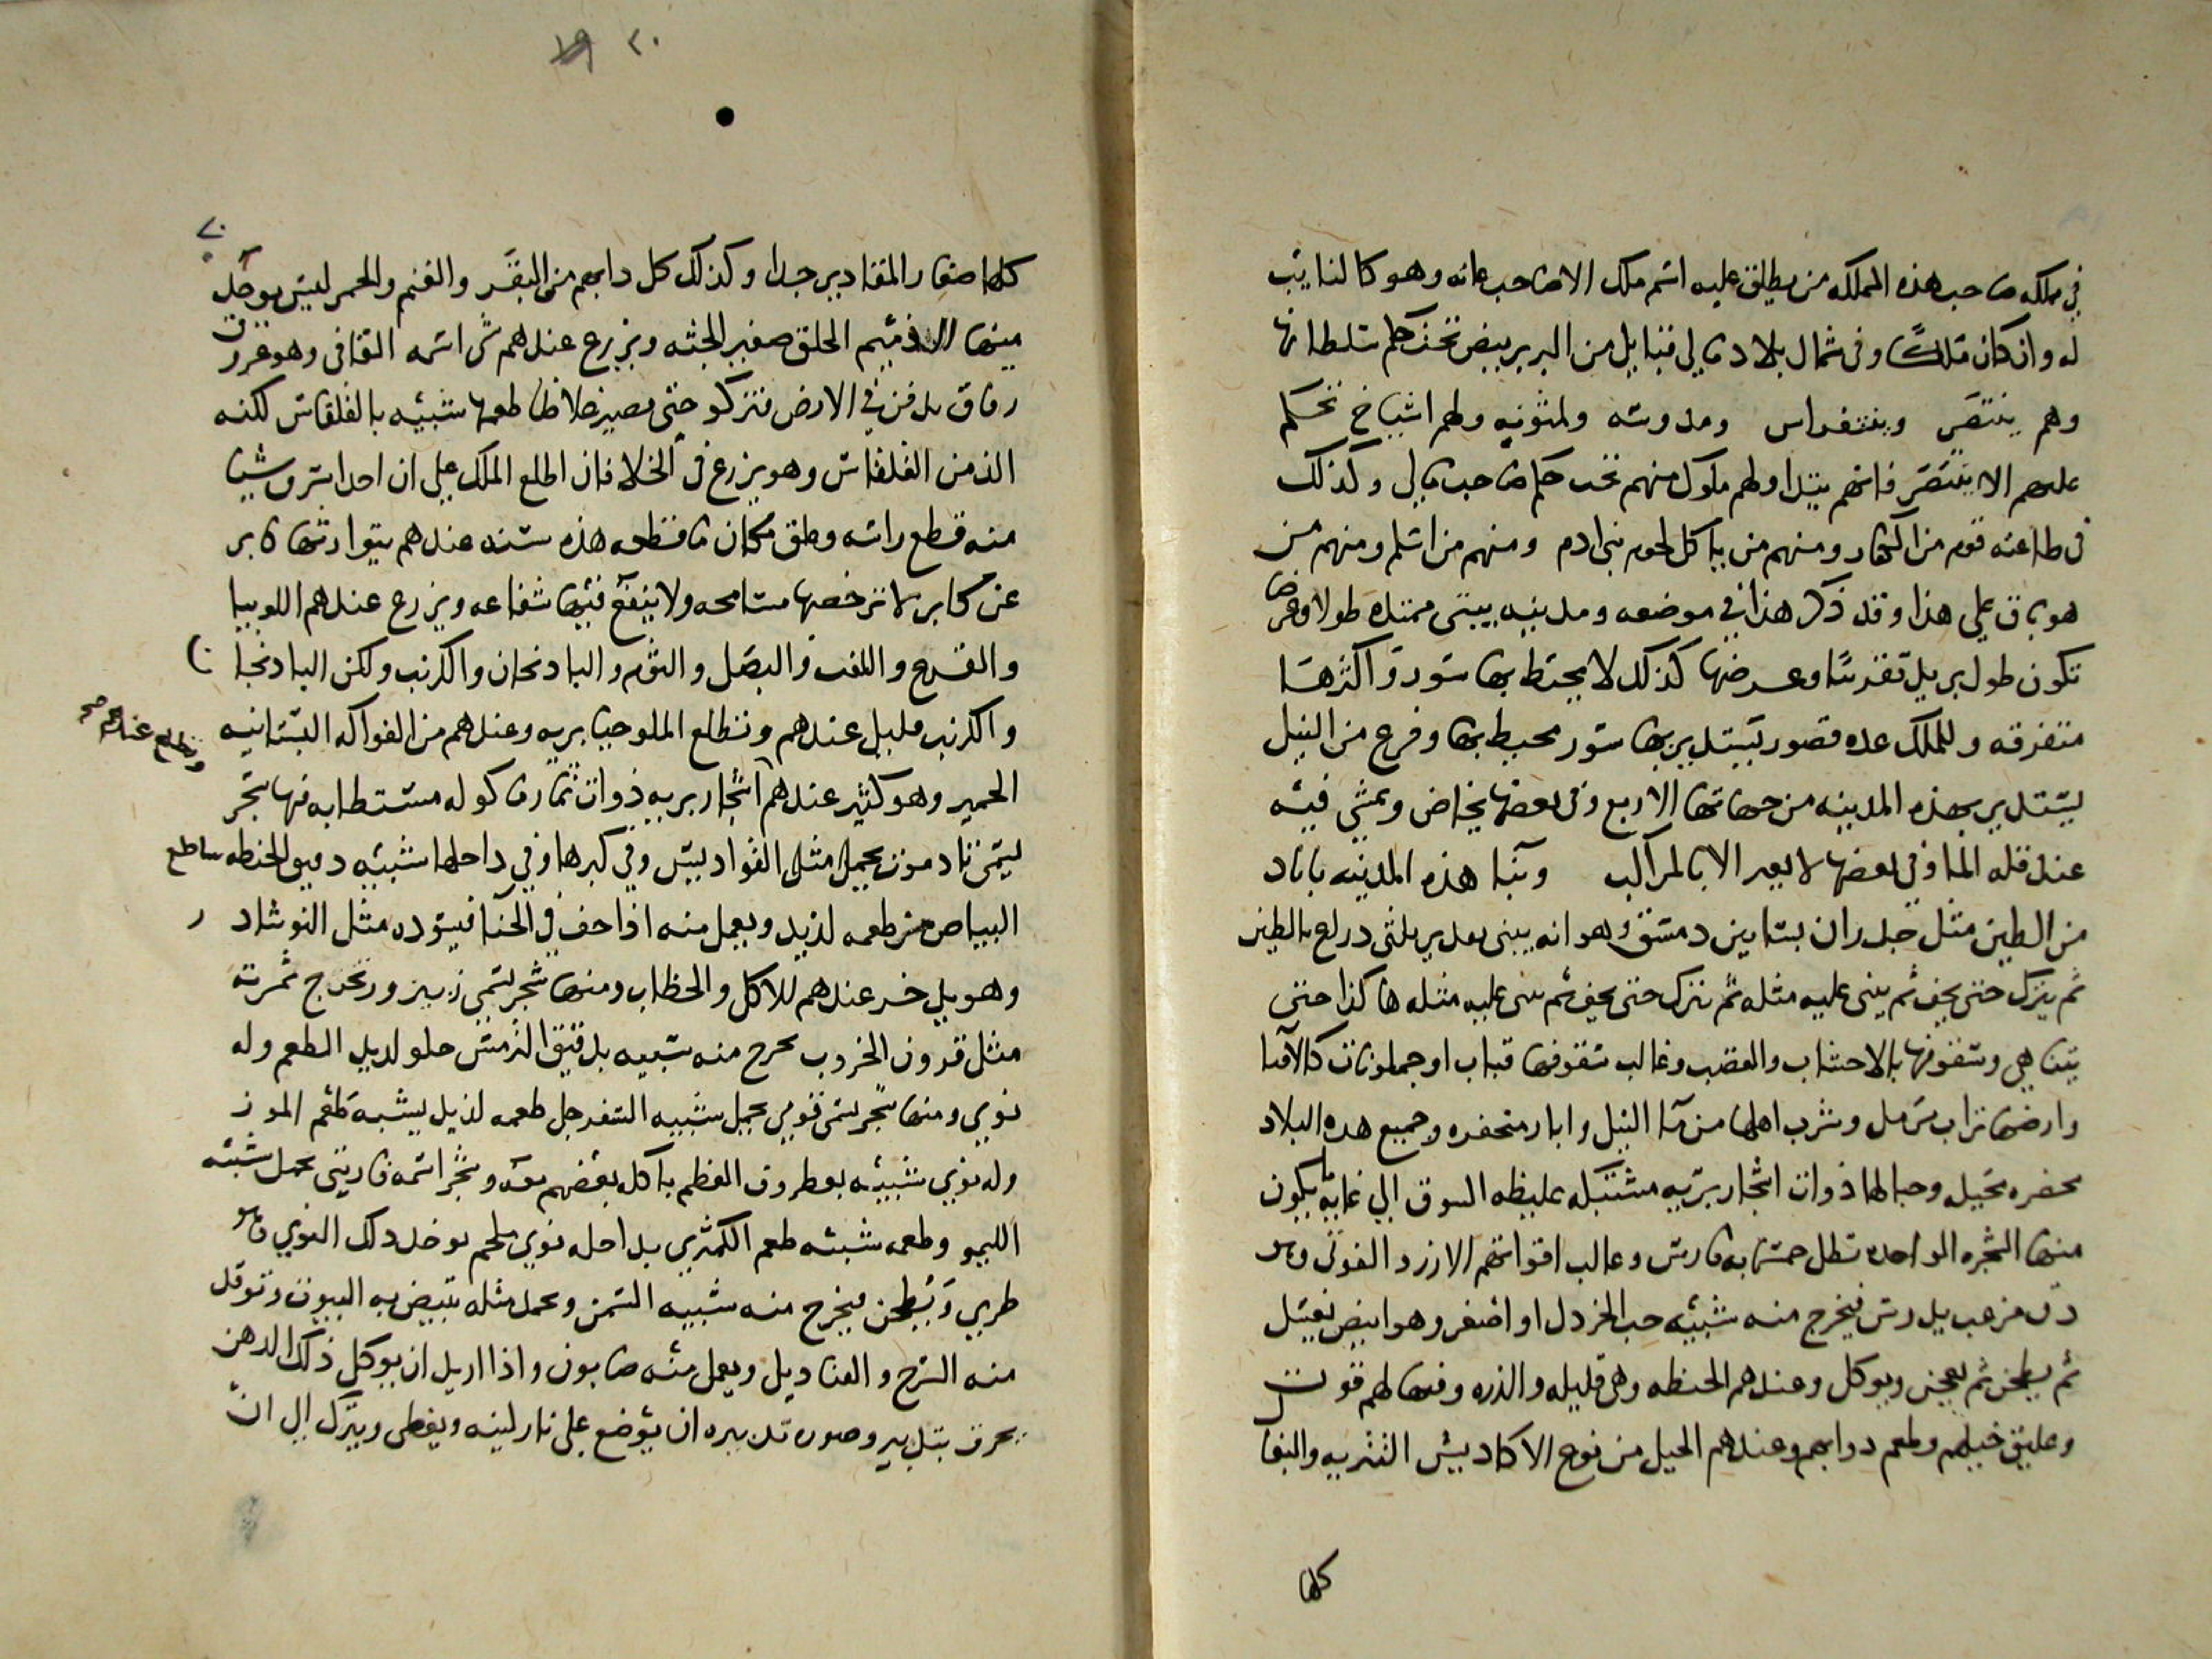 في مملكه صاحب هذه المملكه من يطلق عليه اسم ملك الا صاحب غانه وهو كالنايب
له وان كان ملكًا وفي شمال بلاد مالي قبايل من البربر بيض تحت حكم سلطانها
وهم ينتصر وينتغراس ومدوسه ولمتونه ولهم اشياخ تحكم
عليهم الا ينتصر فانهم يتداولهم ملوك منهم تحت حكم صاحب مالي وكذلك
في طاعته قوم من الكفار ومنهم من ياكل لحوم بني ادم ومنهم من اسلم ومنهم من
هو باق على هذا وقد ذكر هذا في موضعه ومدينه بيتي ممتده طولا وعرضا
تكون طول بريد تقريبًا وعرضها كذلك لا يحيط بها سور واكثرها
متفرقه وللملك عده قصور يستدير بها سور محيط بها وفرع من النيل
يستدير بهذه المدينه من جهاتها الاربع وفي بعضها يخاض ويمشى فيه
عند قله الما وفي بعضها لا يعبر الا بالمراكب وبنا هذه المدينه باياد
من الطين مثل جدران بساتين دمشق وهو انه يبنى بقدر ثلثى دراع بالطين
ثم يترك حتى يجف ثم يبنى عليه مثله ثم يترك حتى يجف ثم يبنى عليه مثله هاكذا حتى
يتناهى وسقوفها بالاخشاب والقصب وغالب سقوفها قباب او جملونات كالاقبا
وارضها تراب مرمل وشرب اهلها من ما النيل وابار محتفره وجميع هذه البلاد
مخضره جبليه وجبالها ذوات اشجار بريه مشتبكه غليظه السوق الي غايه يكون
منها الشجره الواحده تظل خمسمايه فارس وغالب اقواتهم الارز والفوني وهو
دق مزغب يدرس فيخرج منه شبيه حب الخردل او اصغر وهو ابيض يغسل
ثم يطحن ثم يعجن ويوكل وعندهم الحنطه وهي قليله والذره وفيها لهم قوت
وعليق خيلهم وطعم دوابهم وعندهم الخيل من نوع الاكاديش التتريه والبغا
كلها
٢٠ ١٩
٢٠
كلها صغار المقادير جدا وكذلك كل دابهم من البقر والغنم والحمر ليس يوجد
منها الا دميم الخلق صغير الجثه ويزرع عندهم شي اسمه القافي وهو عروق
رقاق يدفن في الارض فتزكو حتى يصير غلاظا طعمها شبيه بالقلقاس لكنه
الذ من القلقاس وهو يزرع في الخلا فان اطلع الملك على ان احدا سرق شيا
منه قطع راسه وعلق مكان ما قطعه هذه سنه عندهم يتوارثها كابر
عن كابر لا ترخصها مسامحه ولا ينفع فيها شفاعه ويزرع عندهم اللوبيا
والقرع واللفت والبصل والثوم والبادنجان والكرنب ولكن البادنجا ن
والكرنب قليل عندهم وتطلع الملوخيا بريه وعندهم من الفواكه البستانيه
ويطلع عندهم صح
الجميز وهو كثير عندهم اشجار بريه ذوات ثمار ماكوله مستطابه فمنها شجر
يسمى تادموت يحمل مثل القواديس وفي كبرها وفي داخلها شبيه دقيق الحنطه ساطع
البياض مز طعمه لذيذ ويعمل منه اذا جف في الحنا فيسوده مثل النوشاد ر
وهو يدخر عندهم للاكل والخظاب ومنها شجر يسمى زبيزور تخرج ثمرته
مثل قرون الخروب يخرج منه شبيه بدقيق الترمس حلو لديد الطعم وله
نوي ومنها شجر يسمى قومي يحمل شبيه السفرجل طعمه لذيذ يشبه طعم الموز
وله نوي شبيه بغطروف العظم ياكل بعضهم معه وشجر اسمه فاريتى يحمل شبيه
الليمو وطعمه شبيه طعم الكمثري بداخله نوي ملحم يوخد دلك النوي وهو
طري ويطحن فيخرج منه شبيه السمن ويجمد مثله تبيض به البيوت وتوقد
منه السرج والقناديل ويعمل منه صابون واذا اريد ان يوكل ذلك الدهن
يحرق بتدبير وصوره تدبيره ان يوضع على نار لينه ويغطى ويترك الى ان